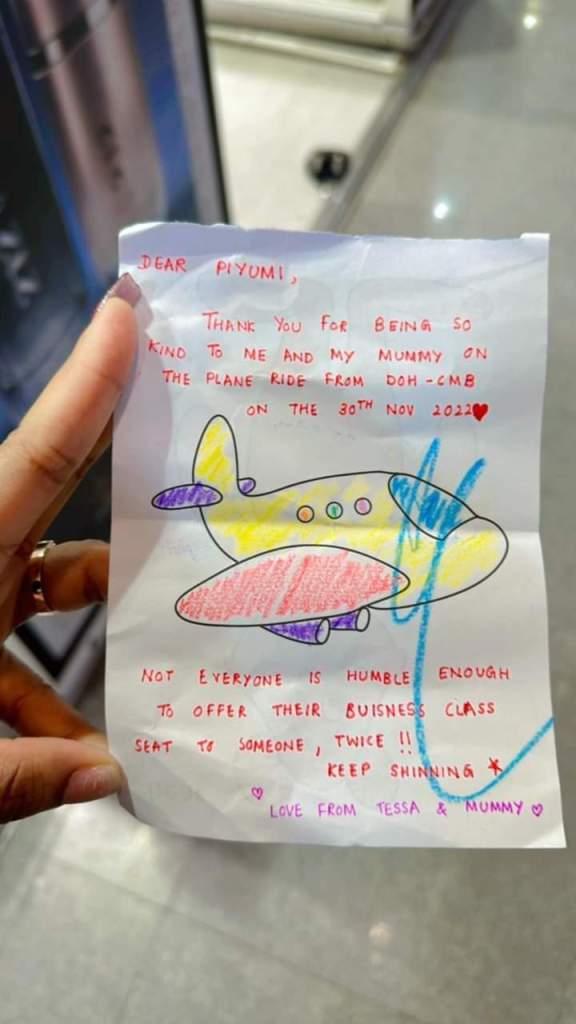 DEAR PIYUMI,
THANK YOU FOR BEING SO
KIND TO ME AND MY MUMMY ON
THE PLANE RIDE FROM DOH-CMB
ON THE 30TH NOV 2022♥
NOT EVERYONE IS HUMBLE ENOUGH
TO OFFER THEIR BUISNESS CLASS
SEAT TO SOMEONE, TWICE !!
KEEP SHINNING *
♡ LOVE FROM TESSA & MUMMY ♡